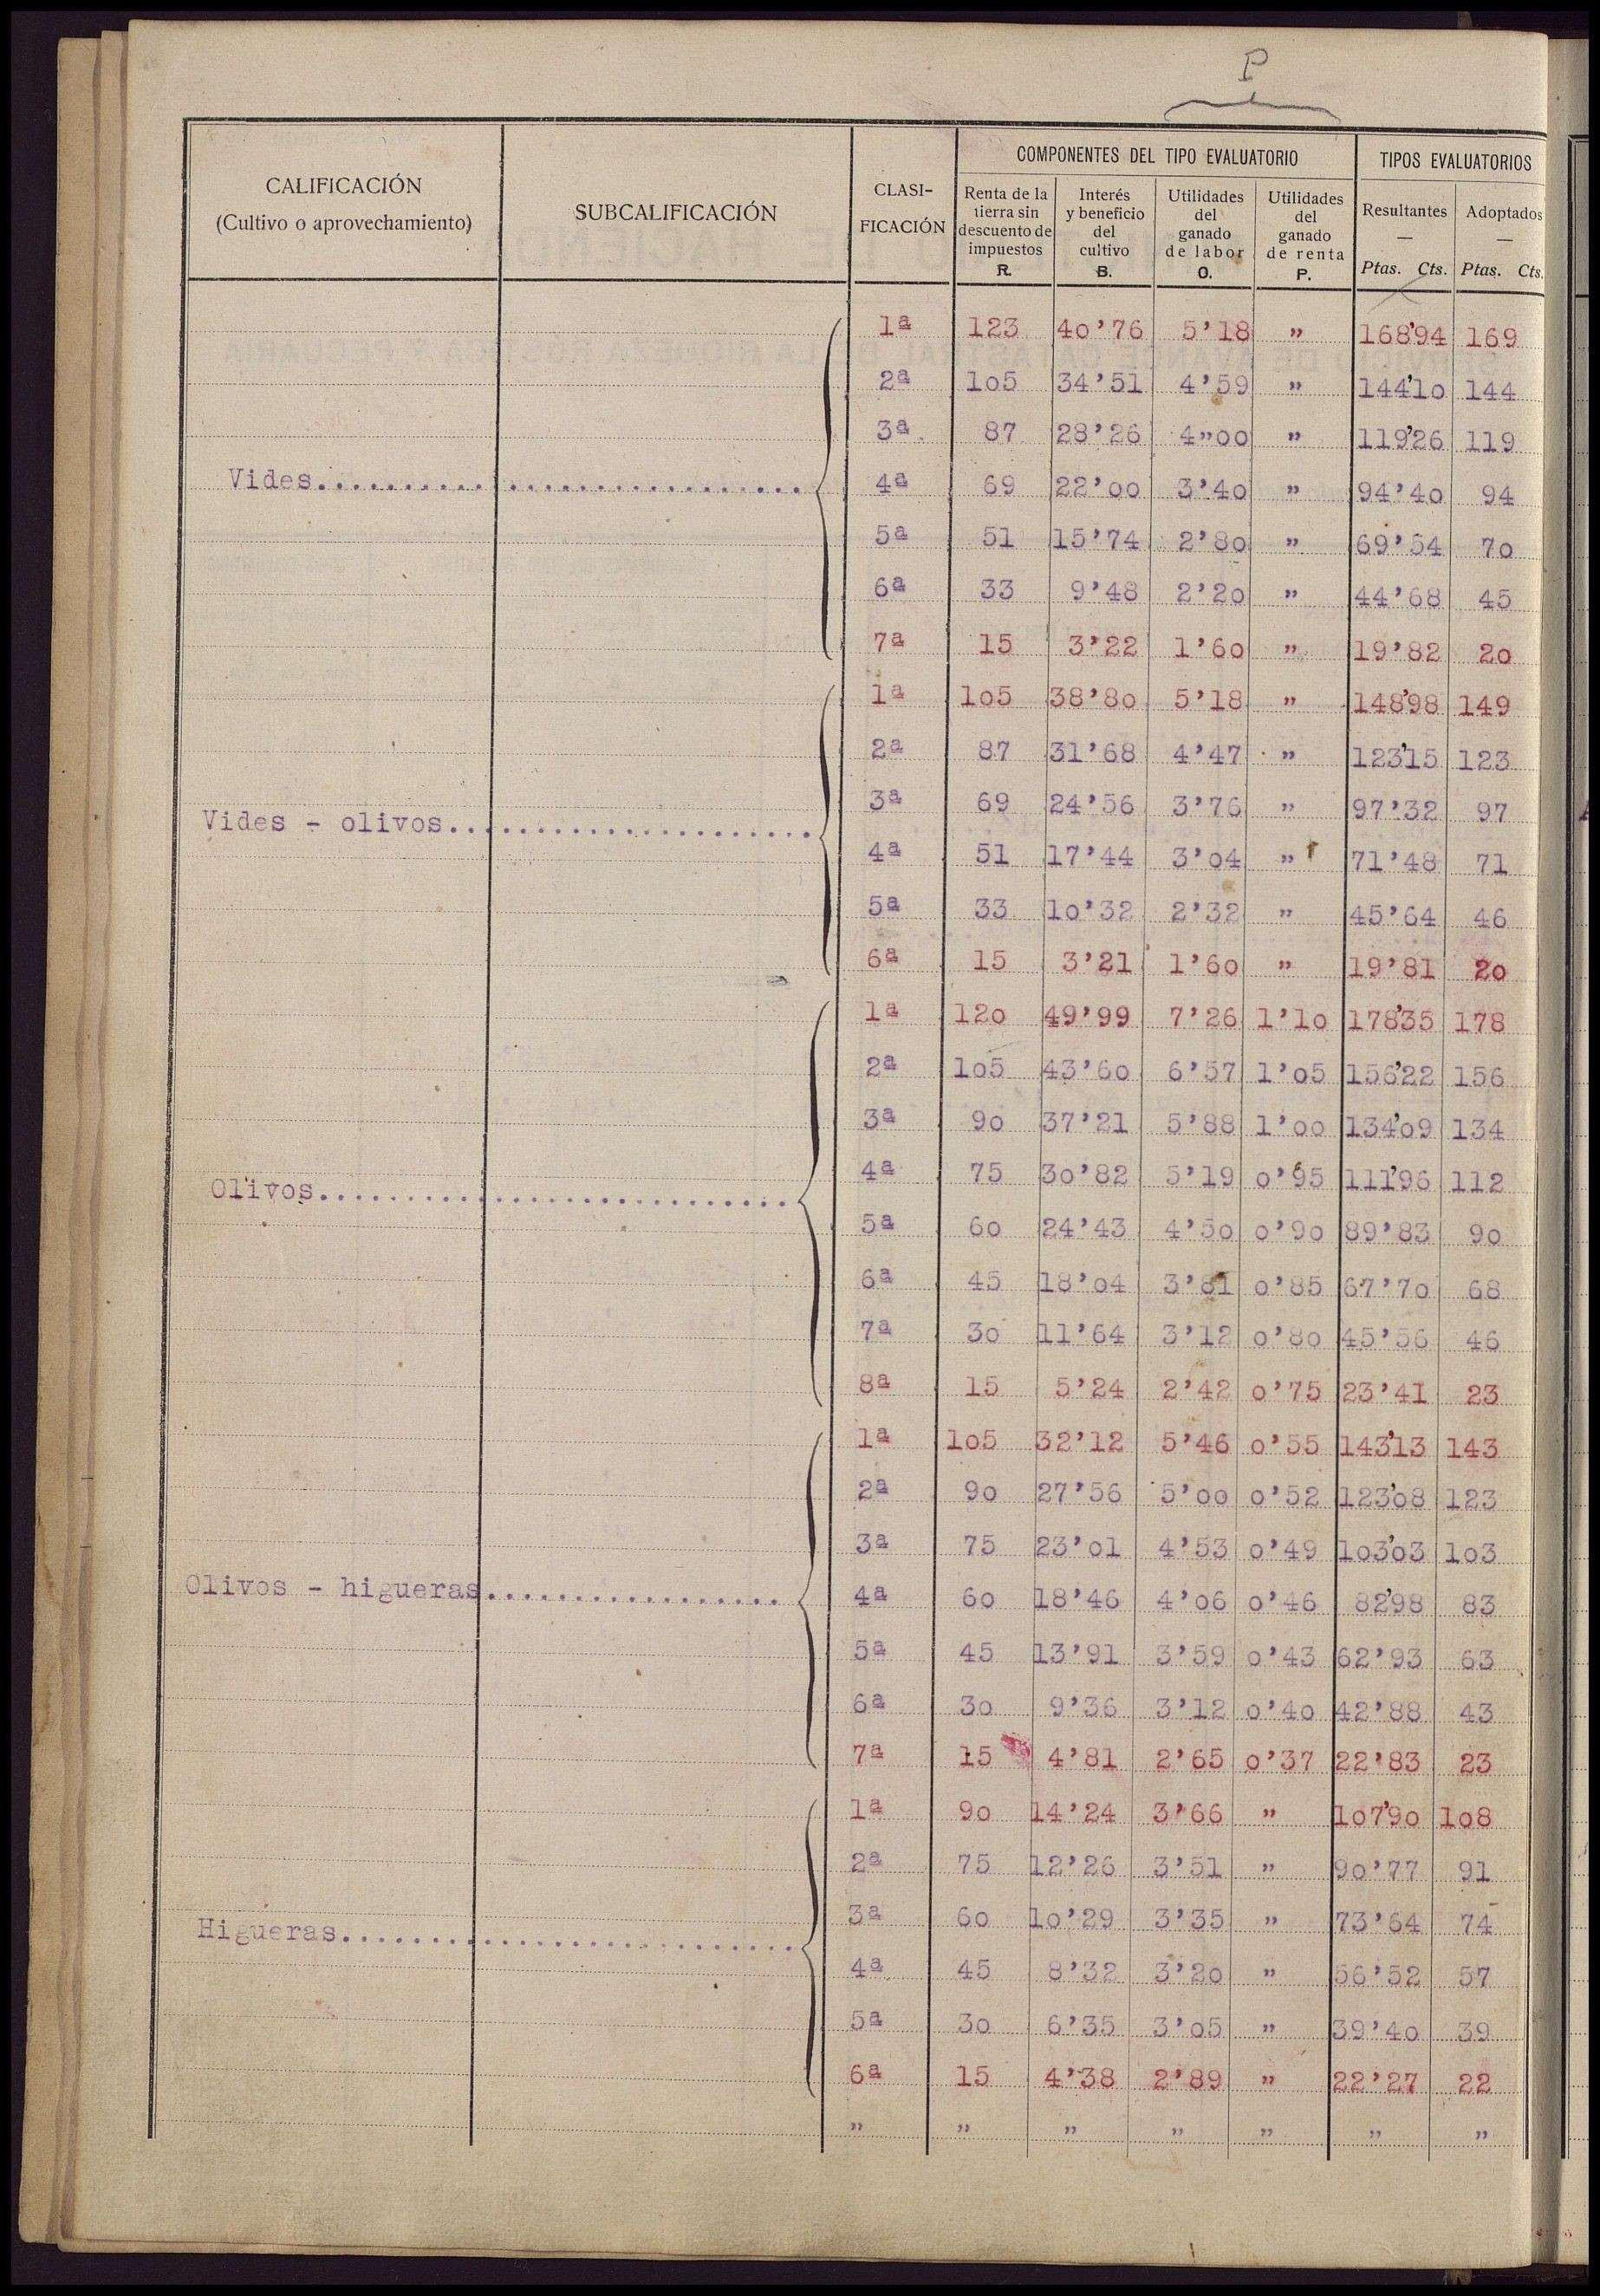 P
CALIFICACIÓN
(Cultivo o aprovechamiento)
SUBCALIFICACIÓN
CLASI-
FICACIÓN
COMPONENTES DEL TIPO EVALUATORIO
Renta de la
tierra sin
descuento de
impuestos
R.
Interés
y beneficio
del
cultivo
B.
Utilidades
del
ganado
de labor
O.
Utilidades
del
ganado
de renta
P.
TIPOS EVALUATORIOS
Resultantes
—
Ptas. Cts.
Adoptados
—
Ptas. Cts.
1ª 123 40’76 5’18 ” 168’94 169
2ª 105 34’51 4’59 ” 144’10 144
3ª 87 28’26 4”00 ” 119’26 119
Vides 4ª 69 22’00 3’40 ” 94’40 94
5ª 51 15’74 2’80 ” 69’54 70
6ª 33 9’48 2’20 ” 44’68 45
7ª 15 3’22 1’60 ” 19’82 20
1ª 105 38’80 5’18 ” 148’98 149
2ª 87 31’68 4’47 ” 123’15 123
3ª 69 24’56 3’76 ” 97’32 97
Vides - olivos
4ª 51 17’44 3’04 ” 71’48 71
5ª 33 10’32 2’32 ” 45’64 46
6ª 15 3’21 1’60 ” 19’81 20
1ª 120 49’99 7’26 1’10 178’35 178
2ª 105 43’60 6’57 1’05 156’22 156
3ª 90 37’21 5’88 1’00 134’09 134
Olivos 4ª 75 30’82 5’19 0’95 111’96 112
5ª 60 24’43 4’50 0’90 89’83 90
6ª 45 18’04 3’81 0’85 67’70 68
7ª 30 11’64 3’12 0’80 45’56 46
8ª 15 5’24 2’42 0’75 23’41 23
1ª 105 32’12 5’46 0’55 143’13 143
2ª 90 27’56 5’00 0’52 123’08 123
3ª 75 23’01 4’53 0’49 103’03 103
Olivos - higueras 4ª 60 18’46 4’06 0’46 82’98 83
5ª 45 13’91 3’59 0’43 62’93 63
6ª 30 9’36 3’12 0’40 42’88 43
7ª 15 4’81 2’65 0’37 22’83 23
1ª 90 14’24 3’66 ” 107’90 108
2ª 75 12’26 3’51 ” 90’77 91
Higueras 3ª 60 10’29 3’35 ” 73’64 74
4ª 45 8’32 3’20 ” 56’52 57
5ª 30 6’35 3’05 ” 39’40 39
6ª 15 4’38 2’89 ” 22’27 22
” ” ” ” ” ” ”